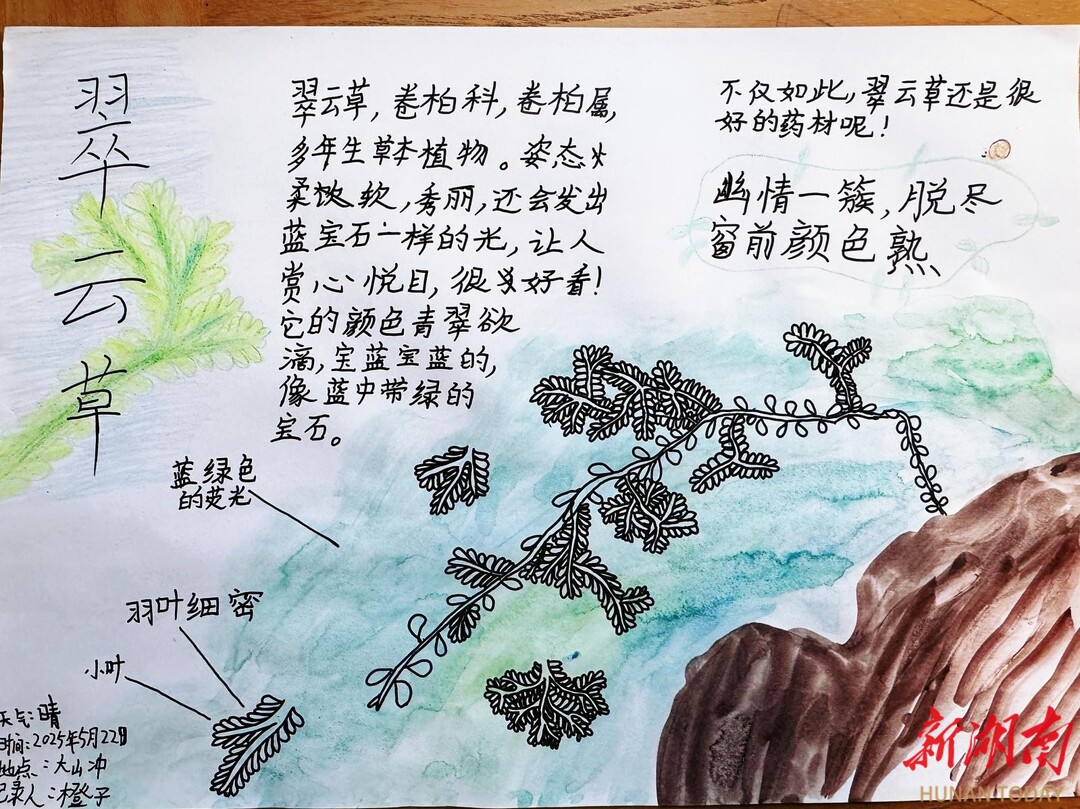 翠云草
翠云草，卷柏科，卷柏属，
多年生草本植物。姿态
柔软，秀丽，还会发出
蓝宝石一样的光，让人
赏心悦目，很好看！
它的颜色青翠欲
滴，宝蓝宝蓝的，
像蓝中带绿的
宝石。
不仅如此，翠云草还是很
好的药材呢！
幽情一簇，脱尽
窗前颜色熟
蓝绿色
的荧光
羽叶细密
小叶
天气：晴
时间：2025年5月22日
地点：大山冲
记录人：橙子
新湖南
HUNAN TODAY